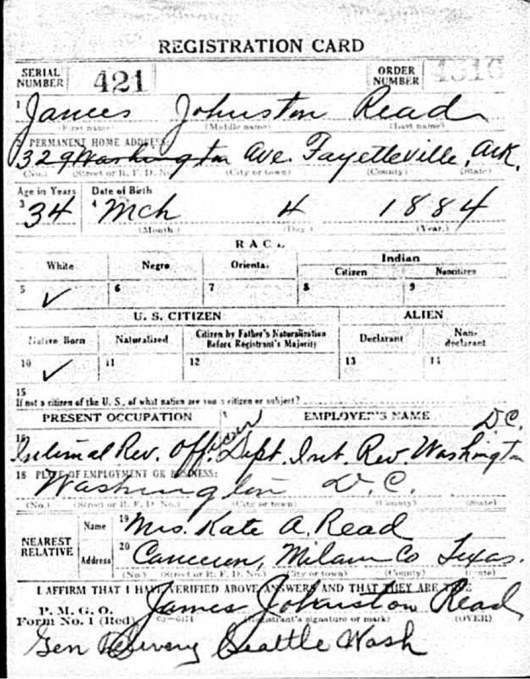 REGISTRATION CARD
SERIAL NUMBER 421 ORDER NUMBER 1316
1 James Johnston Read
(First name) (Middle name) (Last name)
2 PERMANENT HOME ADDRESS:
329 Washington Ave. Fayetteville, Ark.
(No.) (Street or R. F. D. No.) (City or town) (County) (State)
Age in Years Date of Birth
3 34 4 Mch 4 1884
(Month.) (Day.) (Year.)
RACE
White Negro Oriental Indian
Citizen Noncitizen
5 ✓ 6 7 8 9
U. S. CITIZEN ALIEN
Native Born Naturalized Citizen by Father's Naturalization Before Registrant's Majority Declarant Non-declarant
10 ✓ 11 12 13 14
15
If not a citizen of the U. S., of what nation are you a citizen or subject?
PRESENT OCCUPATION EMPLOYER'S NAME
D.C.
16 Internal Rev. Officer Dept. Int. Rev. Washington
18 PLACE OF EMPLOYMENT OR BUSINESS:
Washington D.C.
(No.) (Street or R. F. D. No.) (City or town) (County) (State)
NEAREST RELATIVE
Name 19 Mrs. Kate A. Read
Address 20 Cameron, Milam Co Texas.
(No.) (Street or R. F. D. No.) (City or town) (County) (State)
I AFFIRM THAT I HAVE VERIFIED ABOVE ANSWERS AND THAT THEY ARE TRUE
P. M. G. O.
Form No. 1 (Red) James Johnston Read
(Registrant's signature or mark) (OVER)
Gen Delivery Seattle Wash